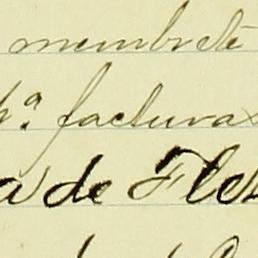 membrete
pª. facturas
a de Fle